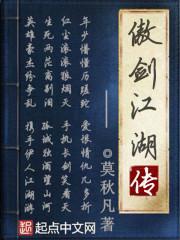 傲剑江湖传
年少懵懂历蹉跎
爱恨情仇几多折
红尘滚滚狼烟天
手执长剑笑看天
生死两茫离别泪
孤城独酒望山河
英雄豪杰纷争乱
携手伊人江湖游
◎莫秋凡著
起点中文网